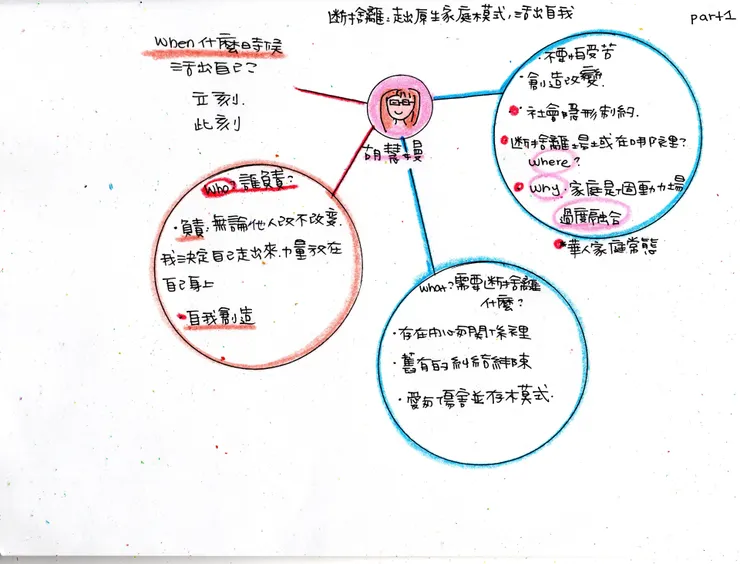 断捨離:走出原生家庭模式,活出自我
part1
when 什麼時候
活出自己?
立刻.
此刻
胡慧嫚
·不要怕受苦
·創造改變.
·社會隱形制約.
·断捨離場域在哪裡?
where?
·why.家庭是個動力場
過度融合
·華人家庭常態
who?誰負責?
·負責,無論他人改不改变.
我決定自己走出來.力量放在
自己身上
·自我創造
what?需要断捨離
什麼?
·存在內心的關係裡
·舊有的糾結綑綁
·愛與傷害並存模式.